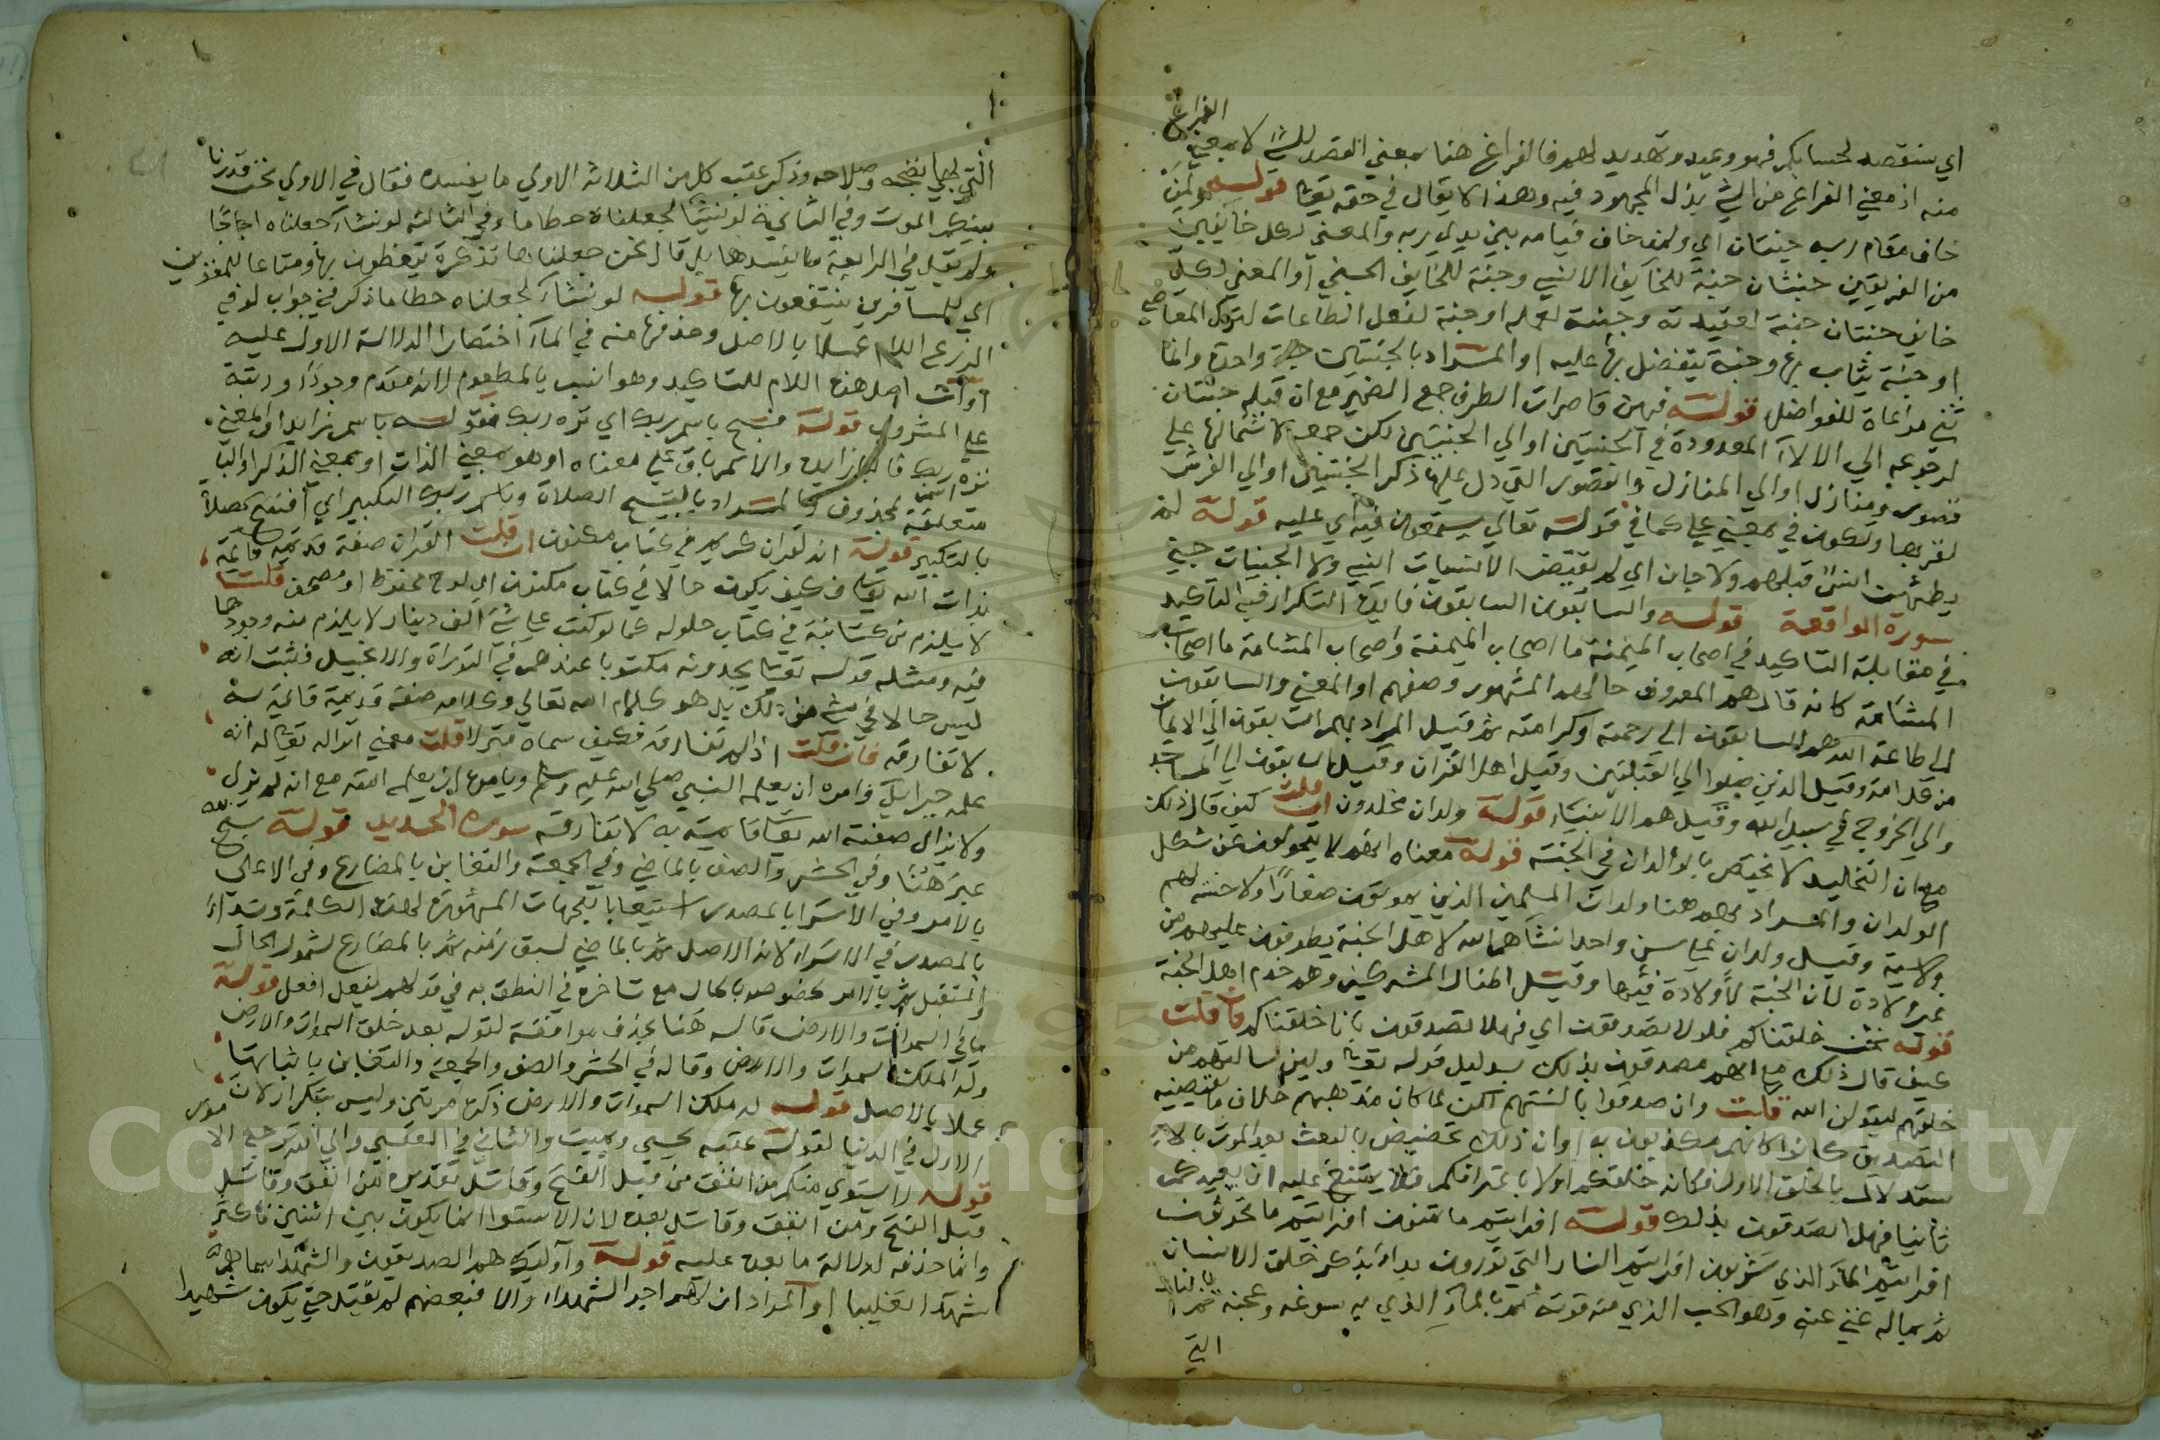 الفراغ
اي سنقصد لحسابكم فهو وعيد وتهديد لهم فالفراغ هنا بمعني القصد للشئ لا بمعني
منه اذ معني الفراغ من الشئ بذل المجهود فيه وهذا لا يقال في حقه تعالى قوله ولمن
خاف مقام ربه جنتان اي ولمن خاف قيامه بين يدي ربه والمعني لكل خايفين
من الفريقين جنتان جنة للخايف الانسي وجنة للخايف الجني او المعني لكل
خايف جنتان جنة لعقيدته وجنة لعمله او جنة لفعل الطاعات لترك المعاصي
او جنة يثاب بها وجنة يتفضل بها عليه او المراد بالجنتين جنة واحدة وانما
ثني مراعاة للفواصل قوله فيهن قاصرات الطرف جمع الضمير مع ان قبله جنتان
لرجوعه الي الالاء المعدودة في الجنتين او الي الجنتين لكن جمعه لاشتمالها علي
قصور ومنازل او الي المنازل والقصور التي دل عليها ذكر الجنتين او الي الفرش
لقربها وتكون في بمعني علي كما في قوله تعالي يستمعون فيه اي عليه قوله لم
يطمثهن انس قبلهم ولا جان اي لم يفتض الانسيات انسي ولا الجنيات جني
سورة الواقعة قوله والسابقون السابقون فايدة التكرار فيه التاكيد
في مقابلة التاكيد في اصحاب الميمنة ما اصحاب الميمنة واصحاب المشامة ما اصحاب
المشامة كانه قال هم المعروف حالهم المشهور وصفهم او المعني والسابقون
الي طاعة الله هم السابقون الي رحمته وكرامته ثم قيل المراد بهم السابقون الي الايمان
من كل امة وقيل الذين صلوا الي القبلتين وقيل اهل القران وقيل السابقون الي المساجد
والي الخروج في سبيل الله وقيل هم الانبياء قوله ولدان مخلدون ان قلت كيف قال ذلك
مع ان التخليد لا يختص بالولدان في الجنة قوله معناه انهم لا يتحولون عن شكل
الولدان والمراد بهم هنا ولدان المسلمين الذين يموتون صغارا ولا حسنة لهم
ولا سية وقيل ولدان علي سن واحد انشاهم الله لاهل الجنة يطوفون عليهم من
غير ولادة لان الجنة لا ولادة فيها وقيل اطفال المشركين وهم خدم اهل الجنة
قوله نحن خلقناكم فلولا تصدقون اي فهلا تصدقون بانا خلقناكم فان قلت
كيف قال ذلك مع انهم مصدقون بذلك بدليل قوله تعالى ولين سالتهم من
خلقهم ليقولن الله قلت وان صدقوا بالسنتهم لكن لما كان مذهبهم خلاف ما يقتضيه
التصديق كانوا كانهم مكذبون به او ان ذلك تحضيض بالبعث بعد الموت بالا
ستدلال بالخلق الاول فكانه خلقكم اولا باعترافكم فلا يمتنع عليه ان يعيدكم
ثانيا فهلا تصدقون بذلك قوله افرايتم ما تمنون افرايتم ما تحرثون
افرايتم الماء الذي تشربون افرايتم النار التي تورون بدا بذكر خلق الانسان
ثم بما له غني عنه وهو الحب الذي منه قوته ثم بالماء الذي به سوغه وعجنه ثم بالنار
التي
التي بها نضجه وصلاحه وذكر عقب كل من الثلاثة الاولي ما يفسده فقال في الاولي نحن قدرنا
بينكم الموت وفي الثانية لو نشاء لجعلناه حطاما وفي الثالثة لو نشاء جعلناه اجاجا
ولم يقل في الرابعة ما يفسدها بل قال نحن جعلناها تذكرة يتعظون بها ومتاعا للمقوين
اي للمسافرين ينتفعون بها قوله لو نشاء لجعلناه حطاما ذكر في جواب لو في
الزرع اللام عملا بالاصل وحذفها منه في الماء اختصارا لدلالة الاول عليه
او ان اصل هذه اللام للتاكيد وهو انسب بالمطعوم لانه مقدم وجودا ورتبة
علي المشروب قوله فسبح باسم ربك اي نزه ربك فقوله باسم زايد او المعني
نزه اسم ربك فالباء زايدة والاسم باق علي معناه او هو بمعني الذات او بمعني الذكر او الباء
متعلقة بمحذوف والمراد بالتسبيح الصلاة وباسم ربك التكبير اي افتتح الصلاة
بالتكبير قوله انه لقران كريم في كتاب مكنون ان قلت القران صفة قديمة قايمة
بذات الله تعالى فكيف يكون حالا في كتاب مكنون اي لوح محفوظ او مصحف قلت
لا يلزم من كتابة في كتاب حلوله كما لو كتب علي شئ الف دينار لا يلزم منه وجودها
فيه ومثله قوله تعالى يجدونه مكتوبا عندهم في التوراة والانجيل فثبت انه
ليس حالا في شئ من ذلك بل هو كلام الله تعالي وكلامه صفة قديمة قايمة به
لا تفارقه فان قلت اذا لم تفارقه فكيف سماه منزلا قلت معني انزاله تعالى له انه
علمه جبرايل وامره ان يعلمه النبي صلي الله عليه وسلم ويامره ان يعلمه امته مع انه لم يزل
ولا يزال صفة الله تعالى قايمة به لا تفارقه سورة الحديد قوله سبح لله
عبر هنا وفي الحشر والصف بالماضي وفي الجمعة والتغابن بالمضارع وفي الاعلي
بالامر وفي الاسرا بالمصدر استيعابا للجهات المشهورة لهذه الكلمة وبدا
بالمصدر في الاسراء لانه الاصل ثم بالماضي لسبق زمنه ثم بالمضارع لشموله الحال
والمستقبل ثم بالامر لخصوصه بالحال مع تاخره في النطق به في قولهم فعل يفعل افعل قوله
ما في السموات والارض قاله هنا بحذف ما موافقة لقوله بعد خلق السموات والارض
وله الملك السموات والارض وقاله في الحشر والصف والجمعة والتغابن باثباتها
عملا بالاصل قوله له ملك السموات والارض ذكره مرتين وليس بتكرار لان
الاول في الدنيا لقوله عقبه يحيي ويميت والثاني في العقبي والي الله ترجع الامور
قوله لا يستوي منكم من انفق من قبل الفتح وقاتل تقديره من انفق وقاتل
قبل الفتح ومن انفق وقاتل بعده لان الاستوا انما يكون بين اثنين فاكثر
وانما حذفه لدلالة ما بعده عليه قوله واوليك هم الصديقون والشهداء سماهم
شهداء تغليبا او المراد ان لهم اجر الشهداء والا فبعضهم لم يقتل حتي يكون شهيدا